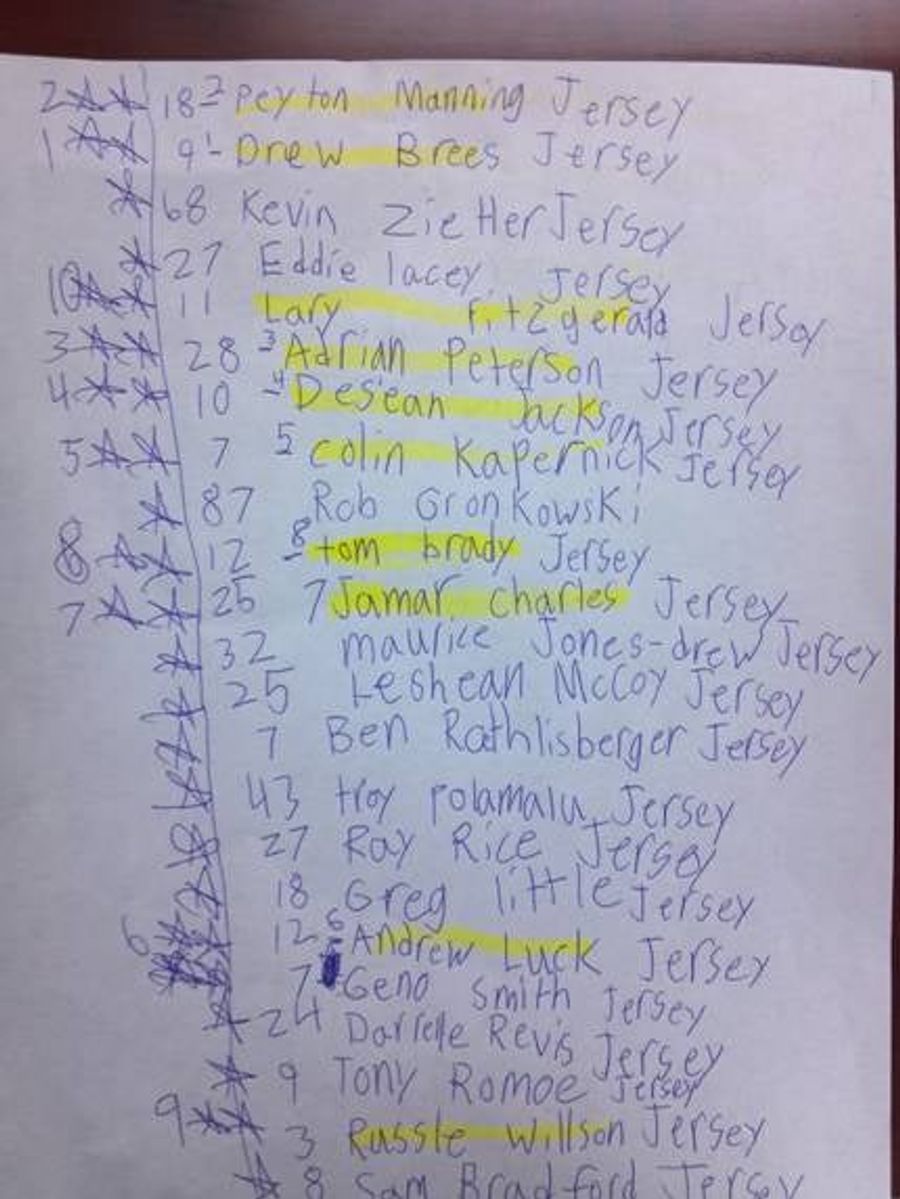 2 18 2 Peyton Manning Jersey
1 9 1- Drew Brees Jersey
68 Kevin Zietler Jersey
27 Eddie lacey Jersey
10 11 Lary Fitzgerald Jersey
3 28 3 Adrian Peterson Jersey
4 10 -4 Desean Jackson Jersey
5 7 5 Colin Kapernick Jersey
87 Rob GronKowski
8 12 8 tom brady Jersey
7 25 7 Jamar charles Jersey
32 maurice Jones-drew Jersey
25 Leshean McCoy Jersey
7 Ben Rothlisberger Jersey
43 troy polamalu Jersey
27 Ray Rice Jersey
18 Greg little Jersey
6 12 6 Andrew Luck Jersey
7 Geno smith Jersey
24 Darrelle Revis Jersey
9 Tony Romoe Jersey
9 3 Russle willson Jersey
8 Sam Bradford Jersey